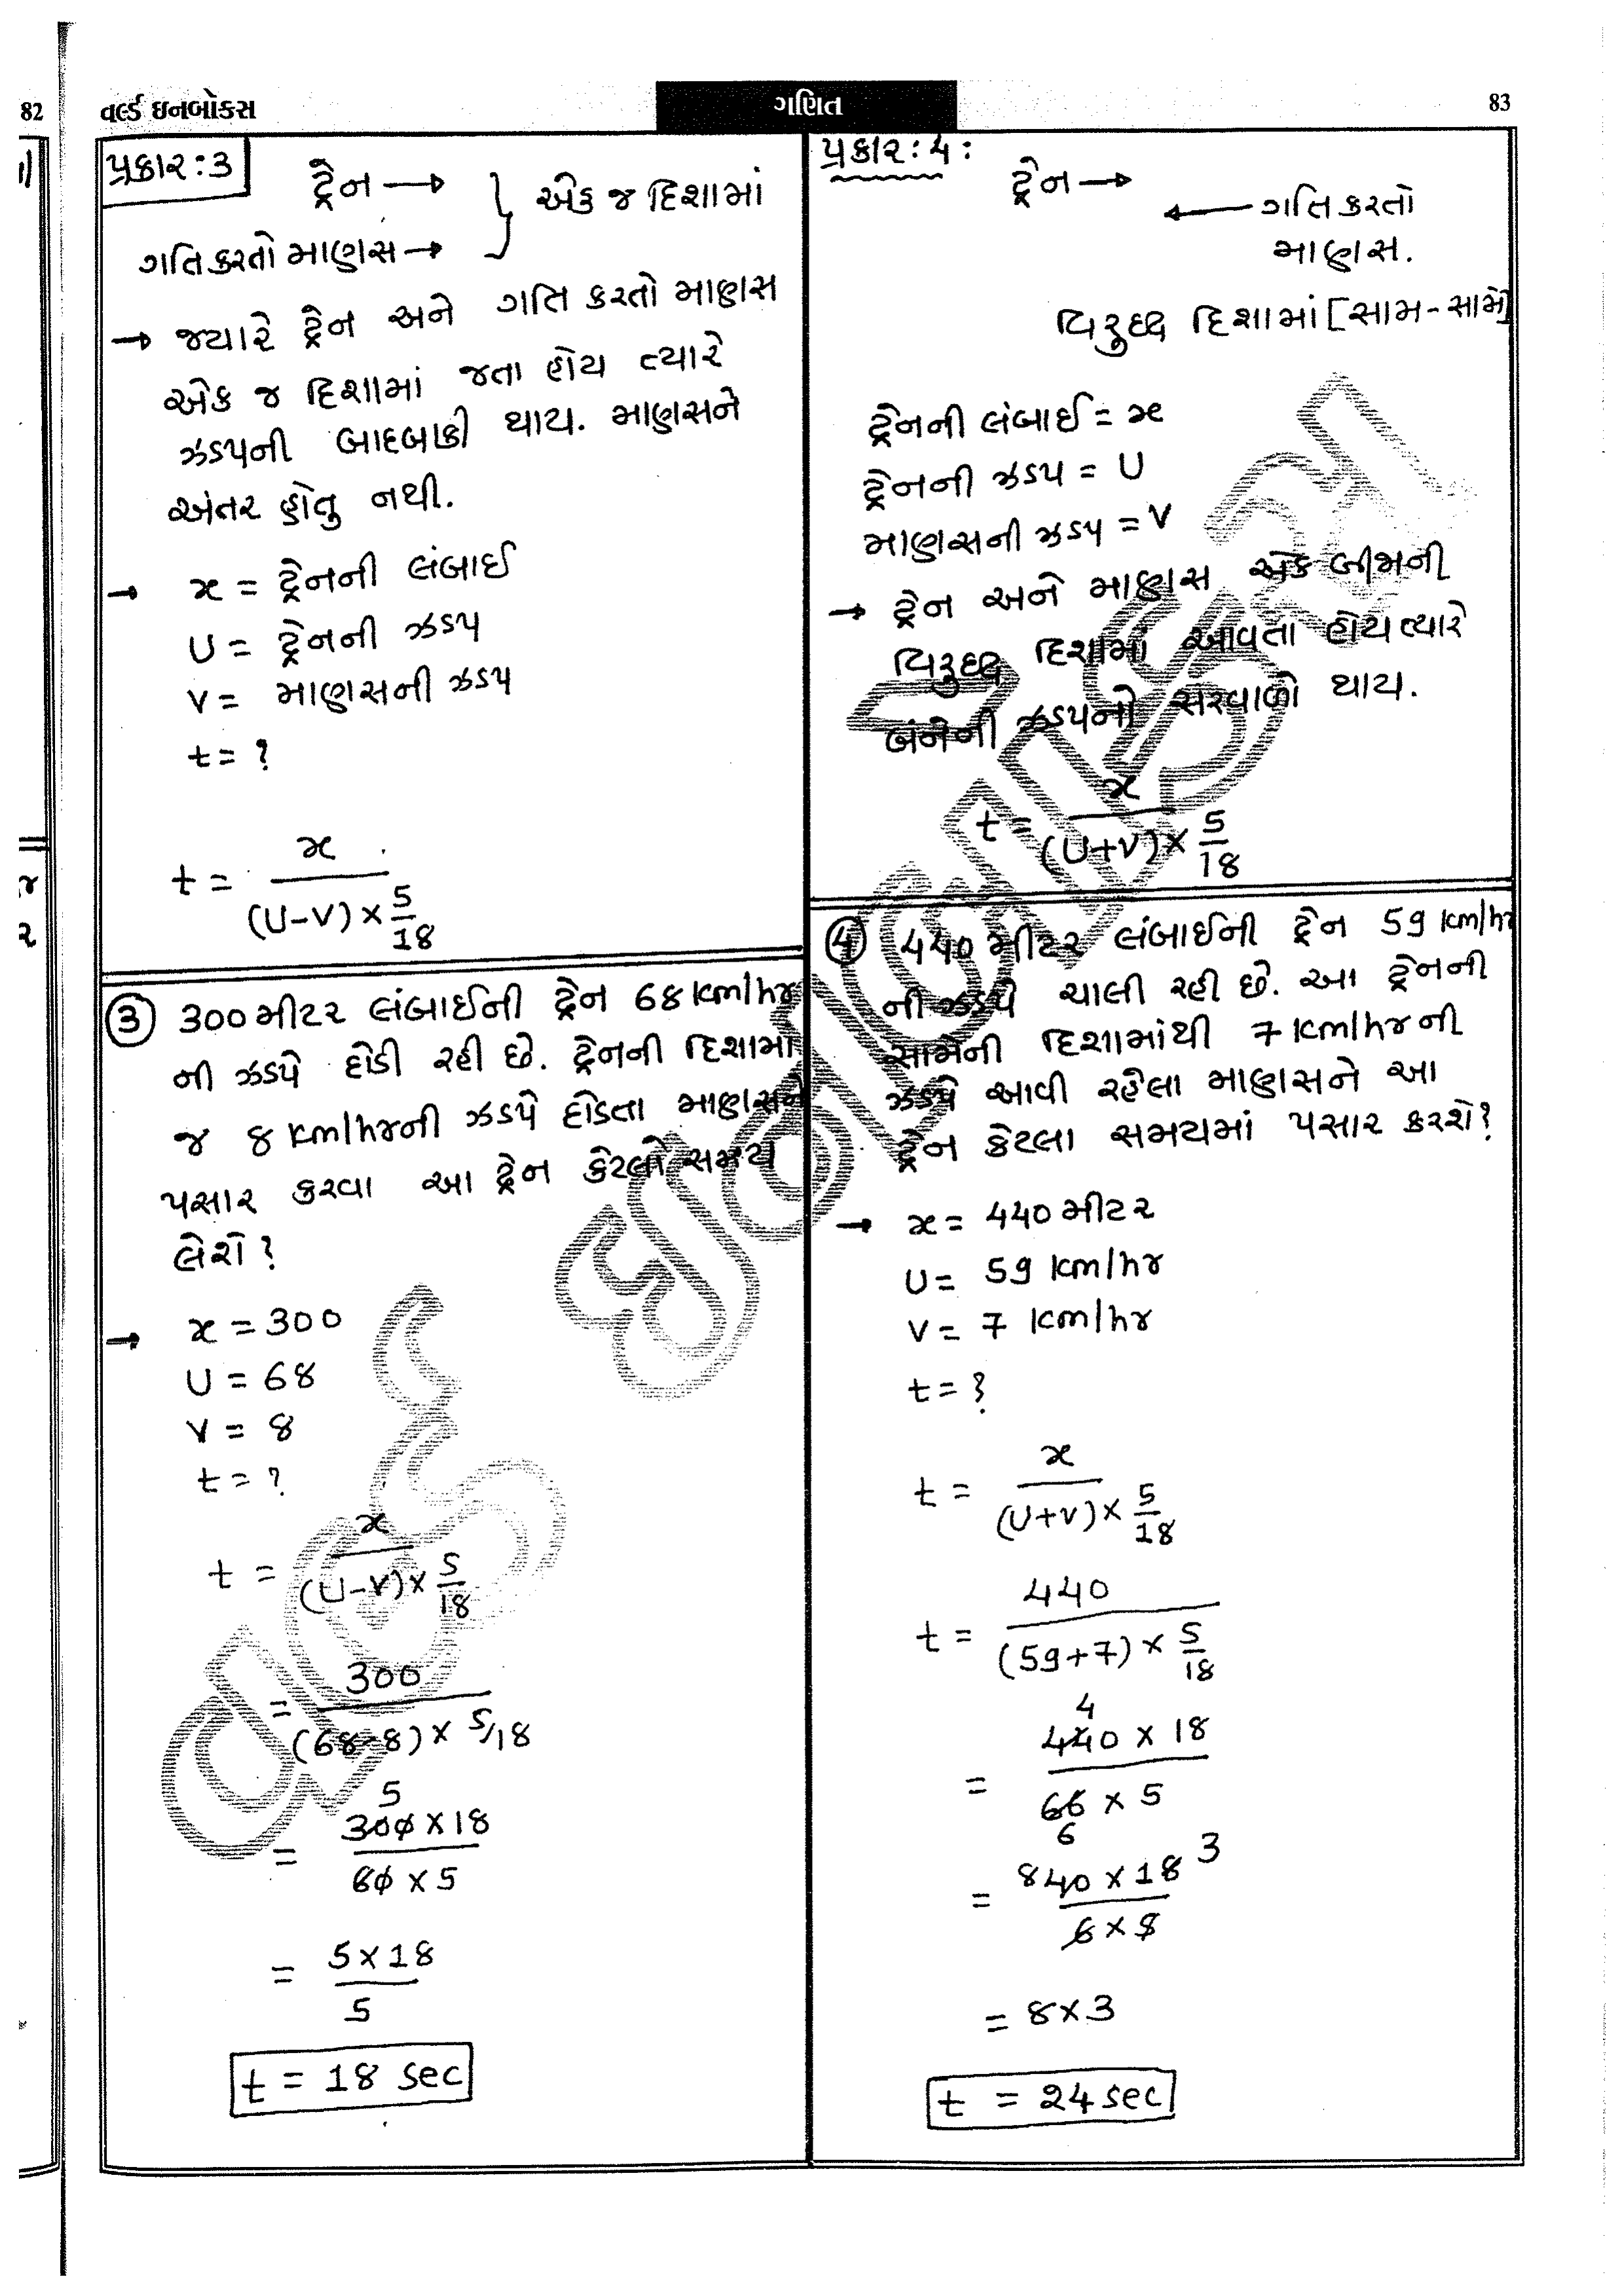 82 વર્લ્ડ ઇનબોક્સ ગણિત 83
પ્રકાર:3
ટ્રેન →
ગતિ કરતો માણસ →
} એક જ દિશામાં
→ જ્યારે ટ્રેન અને ગતિ કરતો માણસ
એક જ દિશામાં જતા હોય ત્યારે
ઝડપની બાદબાકી થાય. માણસને
અંતર હોતુ નથી.
→ x = ટ્રેનની લંબાઈ
U = ટ્રેનની ઝડપ
V = માણસની ઝડપ
t = ?
t = x / (U-V) × 5/18
③ 300 મીટર લંબાઈની ટ્રેન 68 km/hr
ની ઝડપે દોડી રહી છે. ટ્રેનની દિશામાં
જ 8 km/hrની ઝડપે દોડતા માણસને
પસાર કરવા આ ટ્રેન કેટલો સમય
લેશે?
→ x = 300
U = 68
V = 8
t = ?
t = x / (U-V) × 5/18
= 300 / (68-8) × 5/18
5
= 300 × 18 / 60 × 5
= 5 × 18 / 5
t = 18 sec
પ્રકાર:4:
ટ્રેન →
← ગતિ કરતો
માણસ.
વિરુદ્ધ દિશામાં [સામ-સામે]
ટ્રેનની લંબાઈ = x
ટ્રેનની ઝડપ = U
માણસની ઝડપ = V
→ ટ્રેન અને માણસ એક બીજાની
વિરુદ્ધ દિશામાં આવતા હોય ત્યારે
બંનેની ઝડપનો સરવાળો થાય.
t = x / (U+V) × 5/18
④ 440 મીટર લંબાઈની ટ્રેન 59 km/hr
ની ઝડપે ચાલી રહી છે. આ ટ્રેનની
સામેની દિશામાંથી 7 km/hr ની
ઝડપે આવી રહેલા માણસને આ
ટ્રેન કેટલા સમયમાં પસાર કરશે?
→ x = 440 મીટર
U = 59 km/hr
V = 7 km/hr
t = ?
t = x / (U+V) × 5/18
t = 440 / (59+7) × 5/18
4
= 440 × 18 / 66 × 5
6
= 840 × 18 3 / 6 × 5
= 8 × 3
t = 24 sec